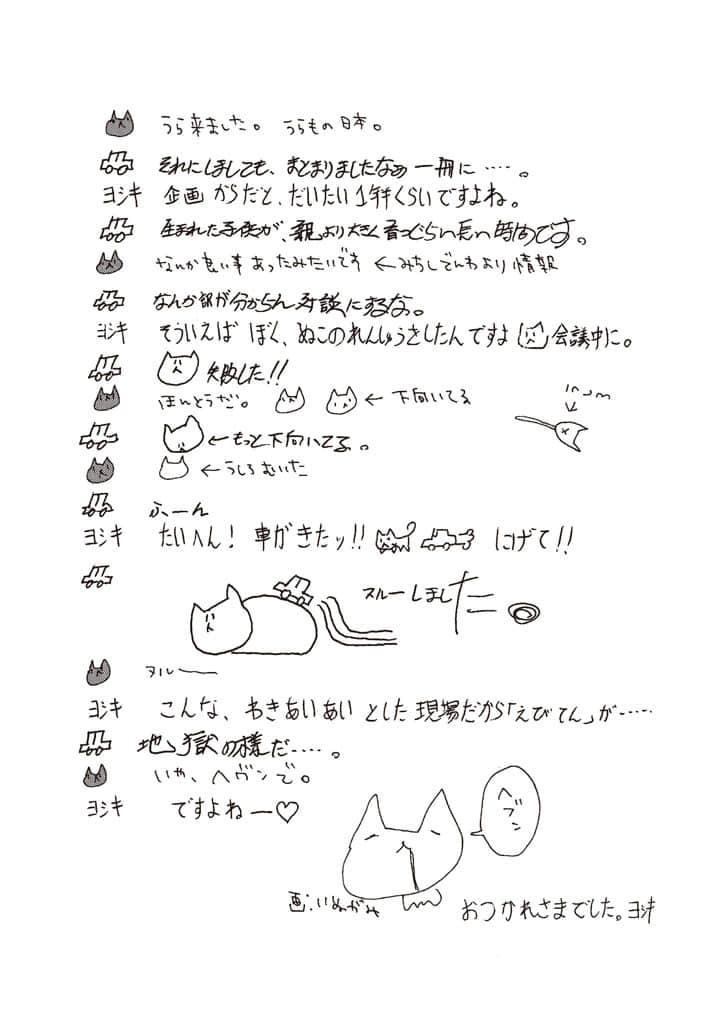 うら来ました。 うらもの日本。
それにしましても、まとまりましたなぁ 一冊に・・・・。
ヨシキ 企画からだと、だいたい1年半くらいですよね。
生まれた子供が、親より大きく育つぐらい長い時間です。
なんか良い事あったみたいです ←みちしでんわより情報
なんか訳が分からん対談にするな。
ヨシキ そういえば ぼく、ぬこのれんしゅうをしたんですよ 会議中に。
失敗した!!
ほんとうだ。 ←下向いてる
←もっと下向いてる。
←うしろむいた
ふーん
ヨシキ たいへん! 車がきたッ!! にげて!!
スルーしました
ヌルー
ヨシキ こんな、わきあいあいとした現場だから「えびてん」が……
地獄の様だ・・・・。
いや、ヘヴンで。
ヨシキ ですよねー♡
ヘブン
画:いぬがみ
おつかれさまでした。ヨシキ